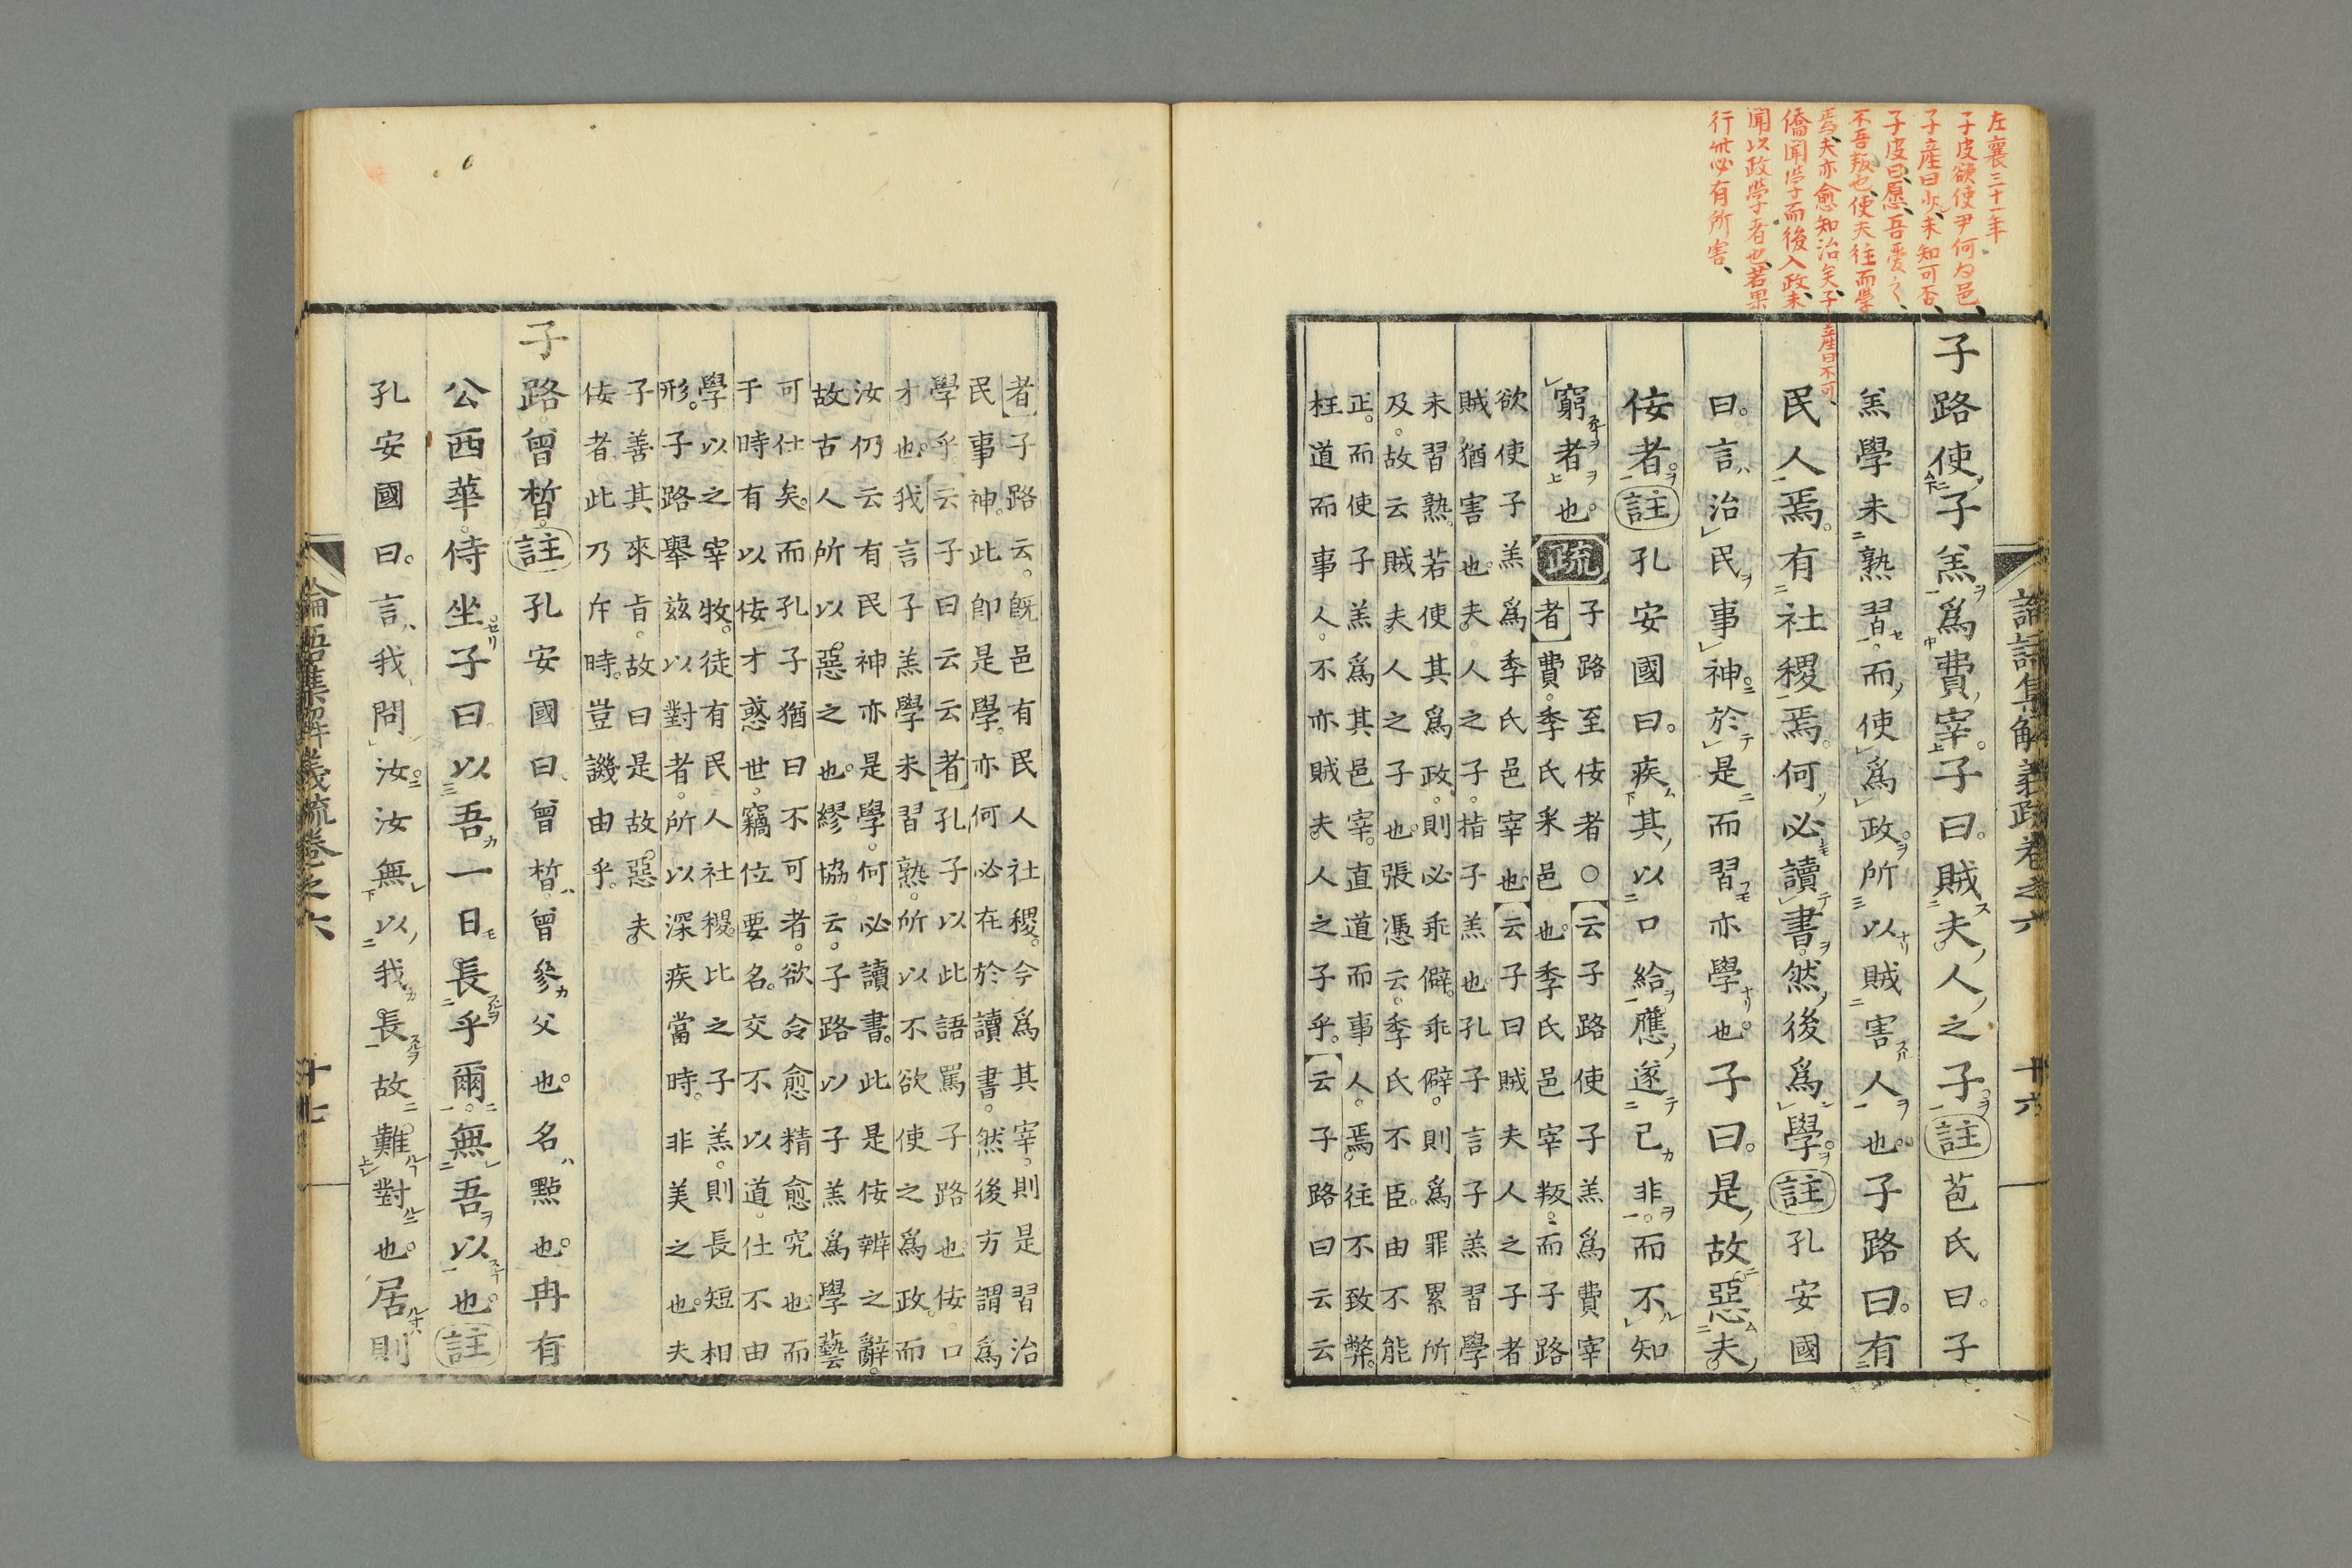 左襄三十一年
子皮欲使尹何为邑、
子産曰少、未知可否、
子皮曰、愿、吾愛之、
不吾叛也、使夫往而學
焉、夫亦愈知治矣、子産曰不可、
僑聞学而後入政、未
聞以政學者也、若果
行此必有所害、
論語集解義疏卷之六　十六
子路使子羔爲費宰。子曰。賊夫人之子註苞氏曰。子
羔學未熟習。而使爲政。所以賊害人也。子路曰。有
民人焉。有社稷焉。何必讀書。然後爲學註孔安國
曰。言治民事神。於是而習亦學也。子曰。是故惡夫
佞者。註孔安國曰。疾其以口給應遂己非。而不知
窮者也。疏
子路至佞者○【云子路使子羔爲費宰
者】費。季氏采邑也。季氏邑宰叛。而子路
欲使子羔爲季氏邑宰也。【云子曰賊夫人之子者
賊猶害也。夫人之子。指子羔也。孔子言子羔習學
未習熟。若使其爲政。則必乖僻。乖僻。則爲罪累所
及。故云賊夫人之子也。張憑云。季氏不臣。由不能
正。而使子羔爲其邑宰。直道而事人。焉往不致弊。
枉道而事人。不亦賊夫人之子乎。【云子路曰云云
者】子路云。旣邑有民人社稷。今爲其宰。則是習治
民事神。此卽是學。亦何必在於讀書。然後方謂爲
學乎。【云子曰云云者】孔子以此語罵子路也。佞。口
才也。我言子羔學未習熟。所以不欲使之爲政。而
汝仍云有民神亦是學。何必讀書。此是佞辨之辭。
故古人所以惡之也。繆協云。子路以子羔爲學藝
可仕矣。而孔子猶曰不可者。欲令愈精愈究也。而
于時有以佞才惑世。竊位要名。交不以道。仕不由
學。以之宰牧。徒有民人社稷。比之子羔。則長短相
形。子路舉茲以對者。所以深疾當時。非美之也。夫
子善其來旨。故曰是故惡夫
佞者。此乃斥時。豈譏由乎。
子路。曾皙。註孔安國曰。曾皙。曾參父也。名點也。冉有
公西華。侍坐子曰。以吾一日長乎爾。無吾以也。註
孔安國曰。言我問汝汝無以我長故難對也。居則
論語集解義疏卷之六　十七